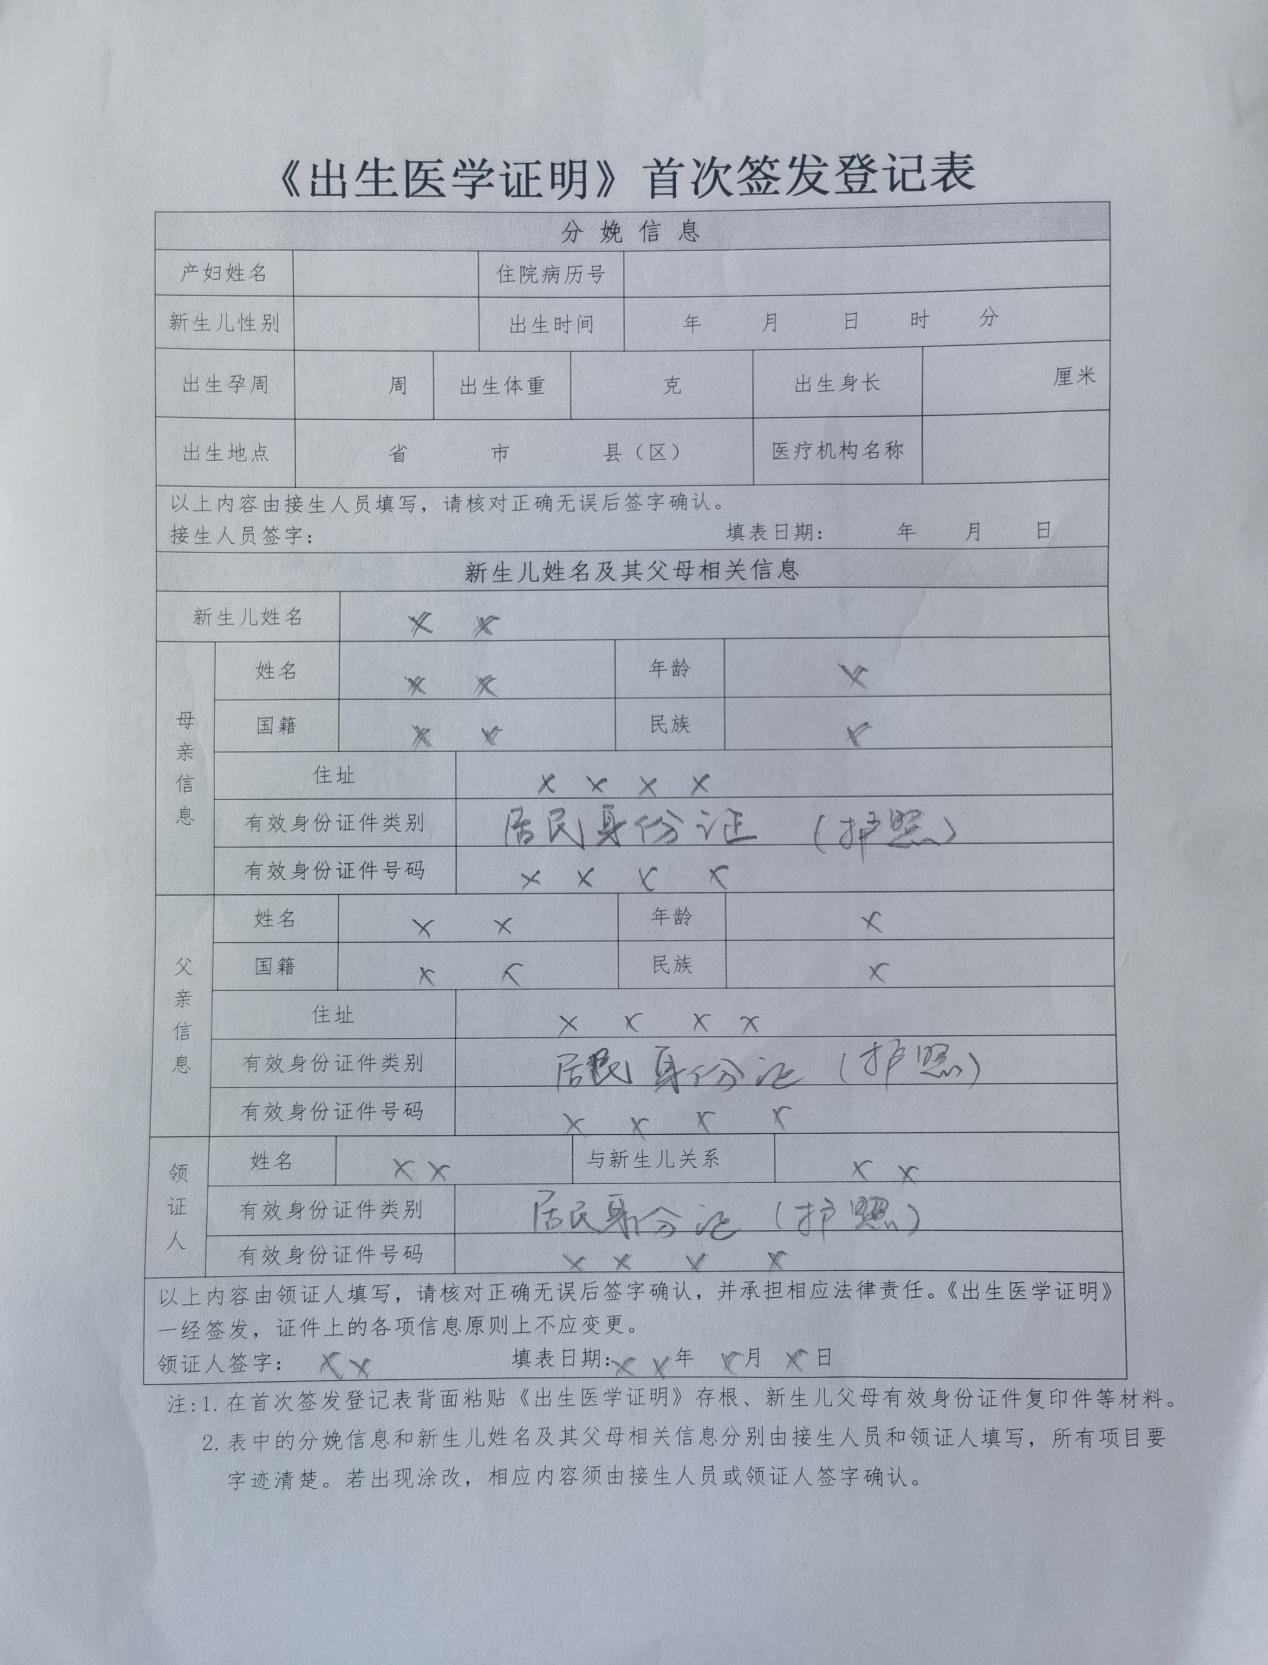 《出生医学证明》首次签发登记表
分娩信息
产妇姓名 住院病历号
新生儿性别 出生时间 年 月 日 时 分
出生孕周 周 出生体重 克 出生身长 厘米
出生地点 省 市 县（区） 医疗机构名称
以上内容由接生人员填写，请核对正确无误后签字确认。
接生人员签字： 填表日期： 年 月 日
新生儿姓名及其父母相关信息
新生儿姓名 × ×
母亲信息
姓名 × × 年龄 ×
国籍 × × 民族 ×
住址 × × × ×
有效身份证件类别 居民身份证 （护照）
有效身份证件号码 × × × ×
父亲信息
姓名 × × 年龄 ×
国籍 × × 民族 ×
住址 × × × ×
有效身份证件类别 居民身份证 （护照）
有效身份证件号码 × × × ×
领证人
姓名 ×× 与新生儿关系 × ×
有效身份证件类别 居民身份证 （护照）
有效身份证件号码 × × × ×
以上内容由领证人填写，请核对正确无误后签字确认，并承担相应法律责任。《出生医学证明》
一经签发，证件上的各项信息原则上不应变更。
领证人签字： ×× 填表日期：× ×年 ×月 ×日
注：1. 在首次签发登记表背面粘贴《出生医学证明》存根、新生儿父母有效身份证件复印件等材料。
2. 表中的分娩信息和新生儿姓名及其父母相关信息分别由接生人员和领证人填写，所有项目要
字迹清楚。若出现涂改，相应内容须由接生人员或领证人签字确认。